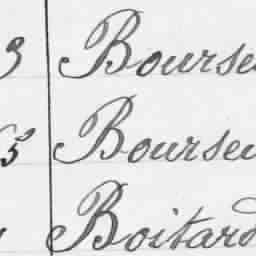 3 Bourse
5 Bourseu
Boitard